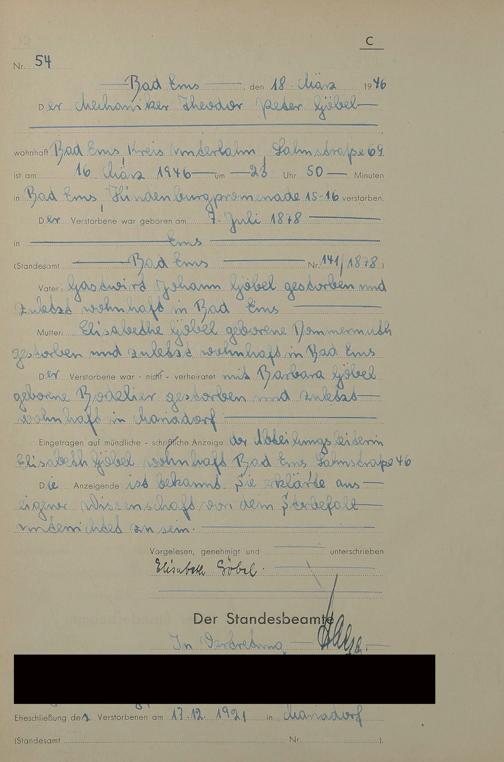 C
Nr. 54
Bad Ems, den 18. März 1946
Der Mechaniker Theodor Peter Göbel
wohnhaft Bad Ems Kreis Unterlahn, Lahnstraße 69
ist am 16 März 1946 um 23 Uhr 50 Minuten
in Bad Ems, Hindenburgpromenade 15-16 verstorben.
Der Verstorbene war geboren am 7. Juli 1878
in Ems
(Standesamt Bad Ems Nr. 141/1878)
Vater: Gastwirt Johann Göbel gestorben und
zuletzt wohnhaft in Bad Ems
Mutter: Elisabethe Göbel geborene Dommermuth
gestorben und zuletzt wohnhaft in Bad Ems
Der Verstorbene war - nicht - verheiratet mit Barbara Göbel
geborne gestorben und zuletzt
wohnhaft in
Eingetragen auf mündliche - schriftliche Anzeige der Abteilungsleiterin
Elisabeth Göbel wohnhaft Bad Ems Lahnstraße 46
Die Anzeigende ist bekannt. Sie erklärte aus
eigener Wissenschaft von dem Sterbefall
unterrichtet zu sein.
Vorgelesen, genehmigt und unterschrieben
Elisabeth Göbel.
Der Standesbeamte
In Vertretung
Eheschließung des Verstorbenen am 17.12.1921 in
(Standesamt Nr. ).